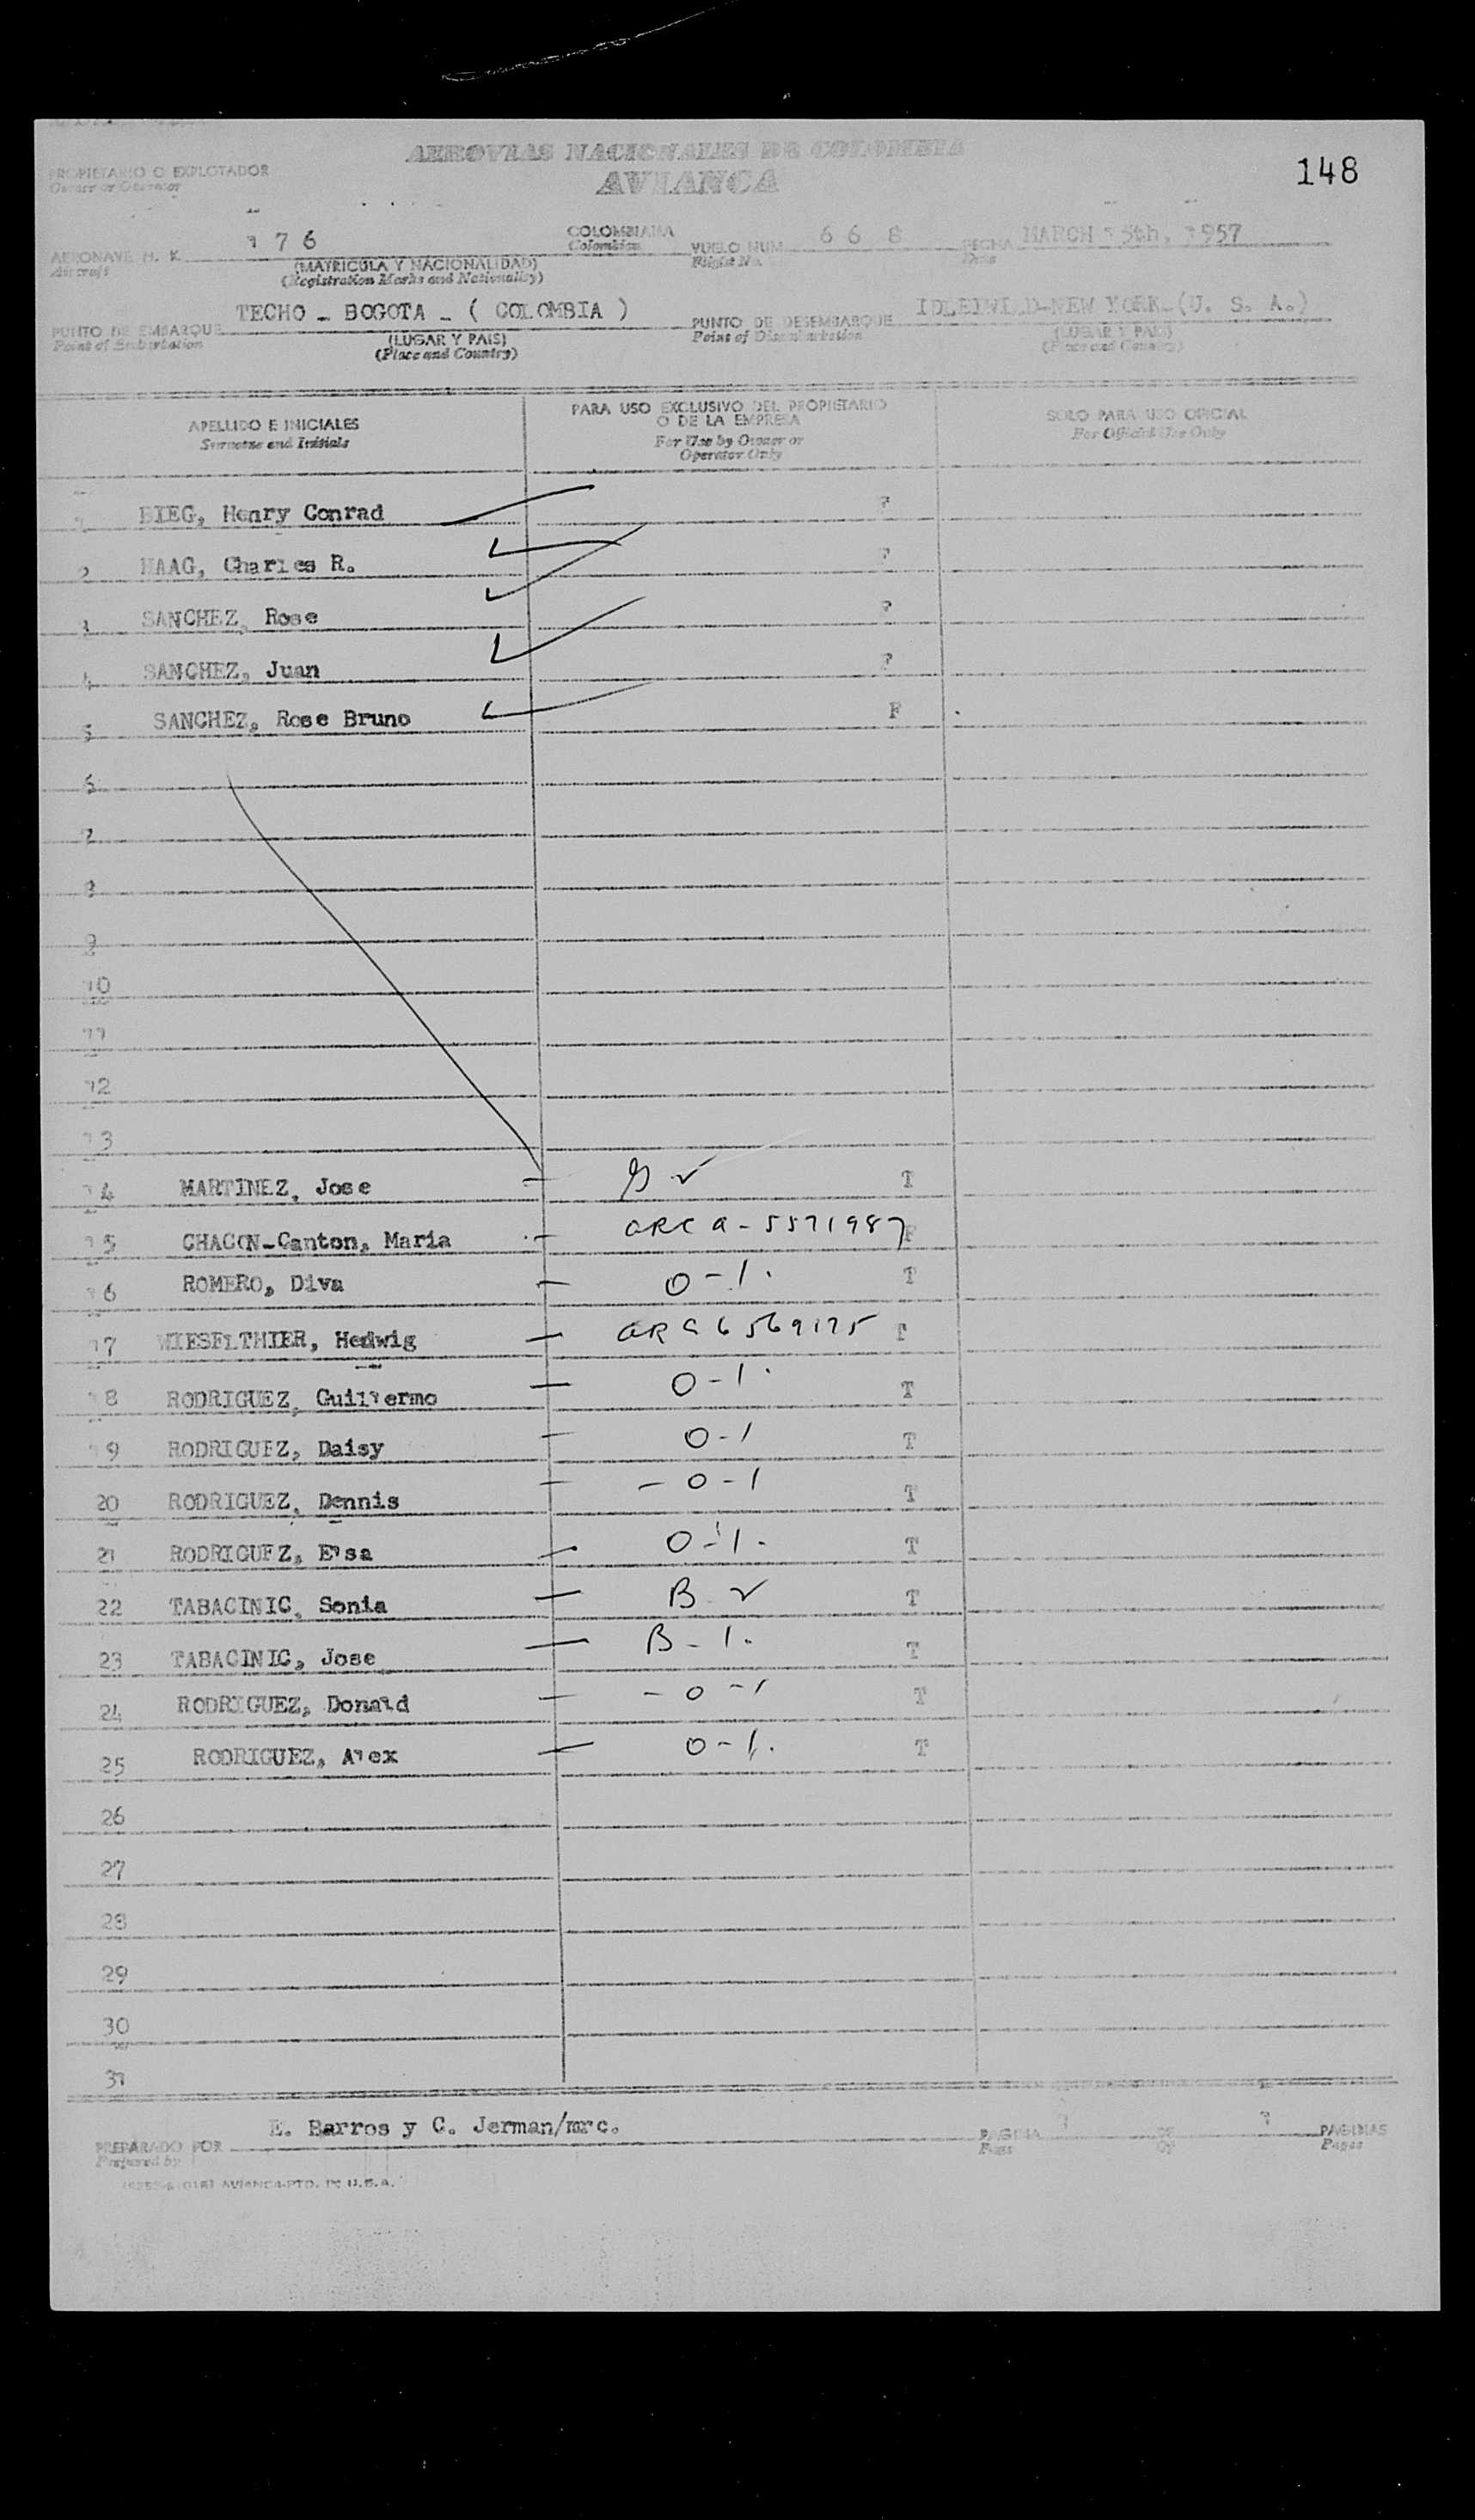 AEROVIAS NACIONALES DE COLOMBIA
AVIANCA
148
PROPIETARIO O EXPLOTADOR
Owner or Operator
AERONAVE H. K. 176 COLOMBIANA VUELO NUM. 668 FECHA MARCH 15th, 1957
Aircraft Colombian Flight No. Date
(MATRICULA Y NACIONALIDAD)
(Registration Marks and Nationality)
PUNTO DE EMBARQUE TECHO - BOGOTA - ( COLOMBIA ) PUNTO DE DESEMBARQUE IDLEIWILD-NEW YORK-(U. S. A.)
Point of Embarkation (LUGAR Y PAIS) Point of Disembarkation (LUGAR Y PAIS)
(Place and Country) (Place and Country)
APELLIDO E INICIALES PARA USO EXCLUSIVO DEL PROPIETARIO SOLO PARA USO OFICIAL
Surname and Initials O DE LA EMPRESA For Official Use Only
For Use by Owner or
Operator Only
1 BIEG, Henry Conrad F
2 HAAG, Charles R. F
3 SANCHEZ, Rose F
4 SANCHEZ, Juan F
5 SANCHEZ, Rose Bruno F
6
7
8
9
10
11
12
13
14 MARTINEZ, Jose T
15 CHACON-Canton, Maria ARC A-5571987
16 ROMERO, Diva O-1. T
17 WIESELTHIER, Hedwig ARC 6569175 T
18 RODRIGUEZ, Guillermo O-1. T
19 RODRIGUEZ, Daisy O-1 T
20 RODRIGUEZ, Dennis - O-1 T
21 RODRIGUEZ, Elsa O-1. T
22 TABACINIC, Sonia B-2 T
23 TABACINIC, Jose B-1. T
24 RODRIGUEZ, Donald - O-1 T
25 RODRIGUEZ, Alex O-1. T
26
27
28
29
30
31
PREPARADO POR E. Barros y C. Jerman/mrc. PAGINA DE PAGINAS
Prepared by Page Of Pages
AVIANCA-PTD. IN U.S.A.